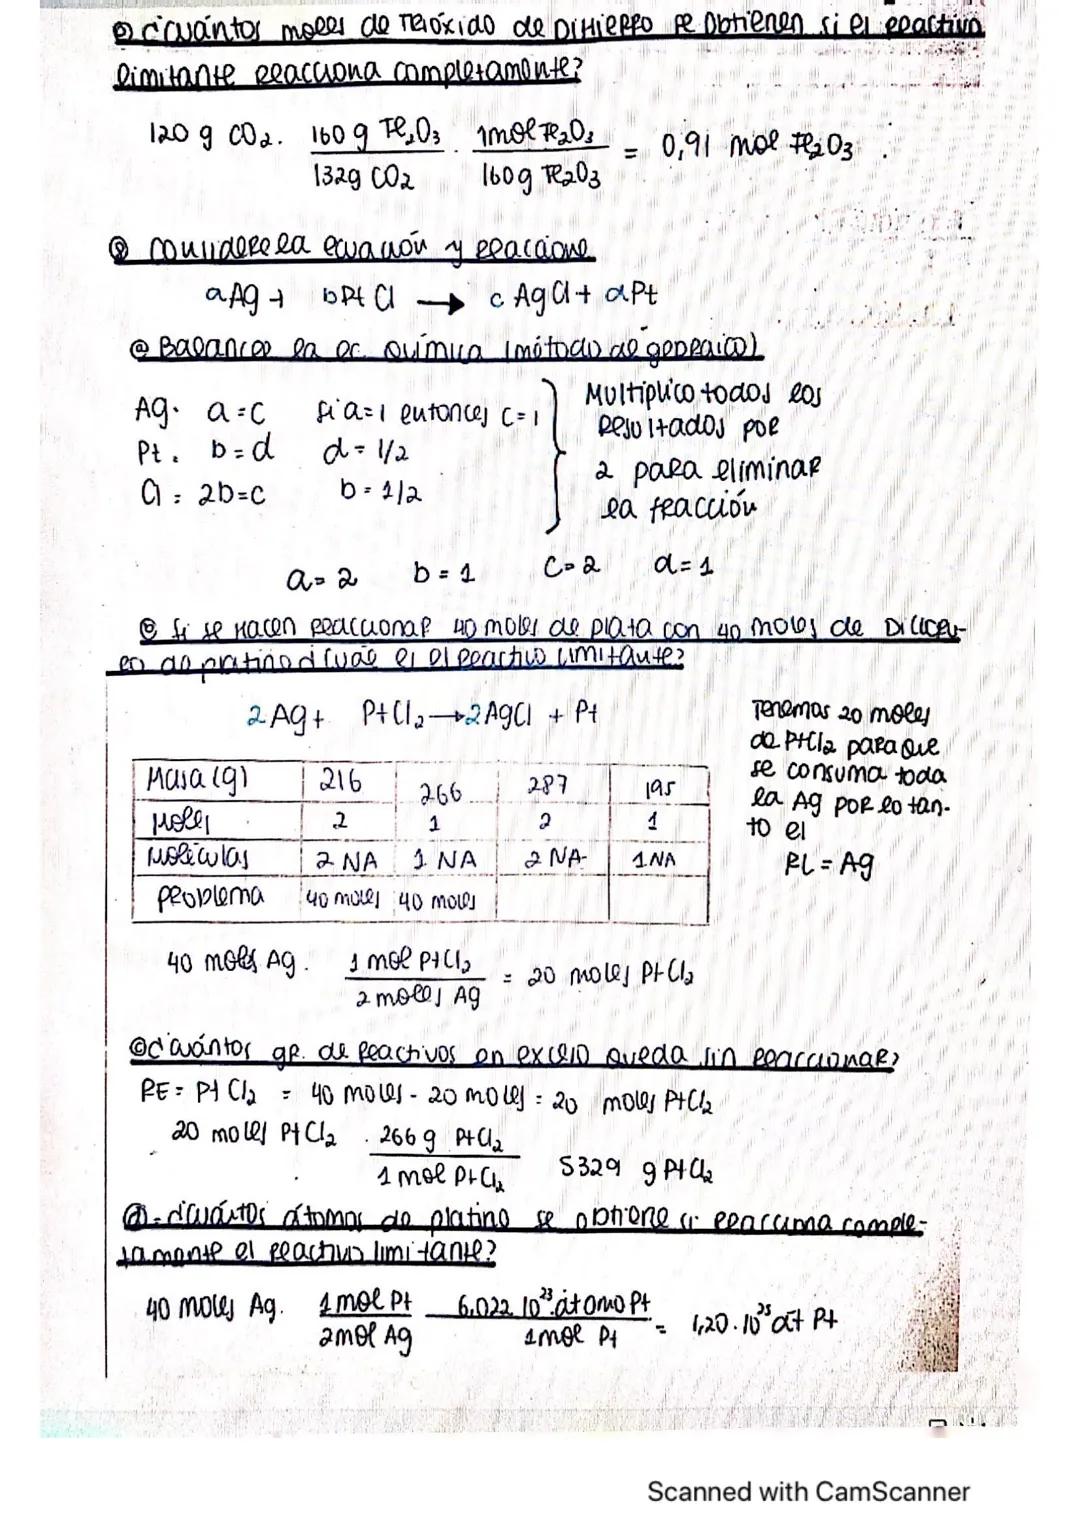 ⓔ ¿Cuántos moles de Trióxido de DiHierro se obtienen si el reactivo
limitante reacciona completamente?
120 g CO₂ . 160 g Fe₂O₃ / 132g CO₂ . 1mol Fe₂O₃ / 160g Fe₂O₃ = 0,91 mol Fe₂O₃
② Considere la ecuación y reaccione
aAg + bPtCl → cAgCl + dPt
ⓐ Balancee la ec. química (método algebraico)
Ag. a=c si a=1 entonces c=1
Pt. b=d d=1/2
Cl: 2b=c b=1/2
Multiplico todos los
resultados por
2 para eliminar
la fracción
a=2 b=1 c=2 d=1
ⓑ Si se hacen reaccionar 40 moles de plata con 40 moles de Diclorú-
ro de platino ¿cuál es el reactivo limitante?
2Ag + PtCl₂ → 2AgCl + Pt
Masa (g) 216 266 287 195
Moles 2 1 2 1
Moléculas 2 NA 1 NA 2 NA- 1NA
Problema 40 moles 40 moles
Tenemos 20 moles
de PtCl₂ para que
se consuma toda
la Ag por lo tan-
to el
RL = Ag
40 moles Ag . 1 mol PtCl₂ / 2 moles Ag = 20 moles PtCl₂
ⓒ ¿Cuántos gr. de reactivos en exceso queda sin reaccionar?
RE = PtCl₂ = 40 moles - 20 moles = 20 moles PtCl₂
20 moles PtCl₂ . 266 g PtCl₂ / 1 mol PtCl₂ 5329 g PtCl₂
ⓓ - ¿Cuántos átomos de platino se obtiene si reacciona comple-
tamente el reactivo limitante?
40 moles Ag. 1 mol Pt / 2mol Ag 6,022.10²³ átomo Pt / 1mol Pt = 1,20.10²⁵ át Pt
Scanned with CamScanner